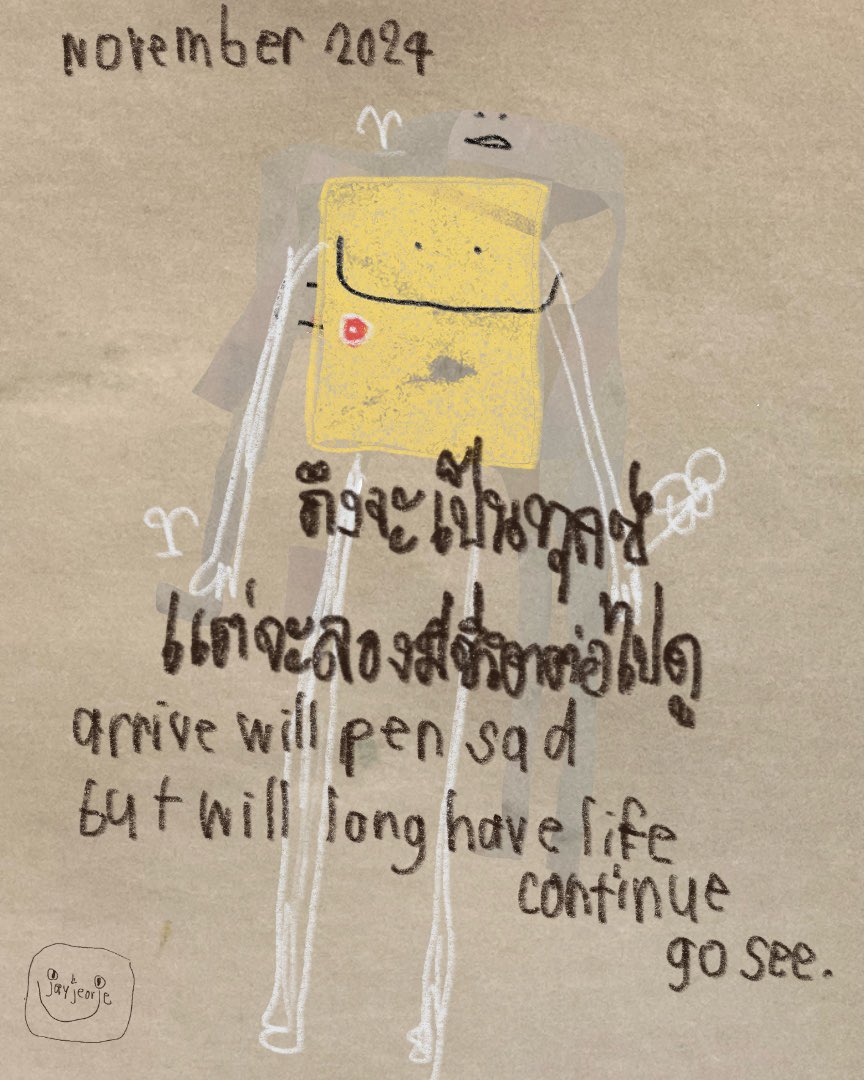 November 2024
ถึงจะเป็นทุกข์
แต่จะลองมีชีวิตต่อไปดู
arrive will pen sad
but will long have life
continue
go see.
jay & jeorje